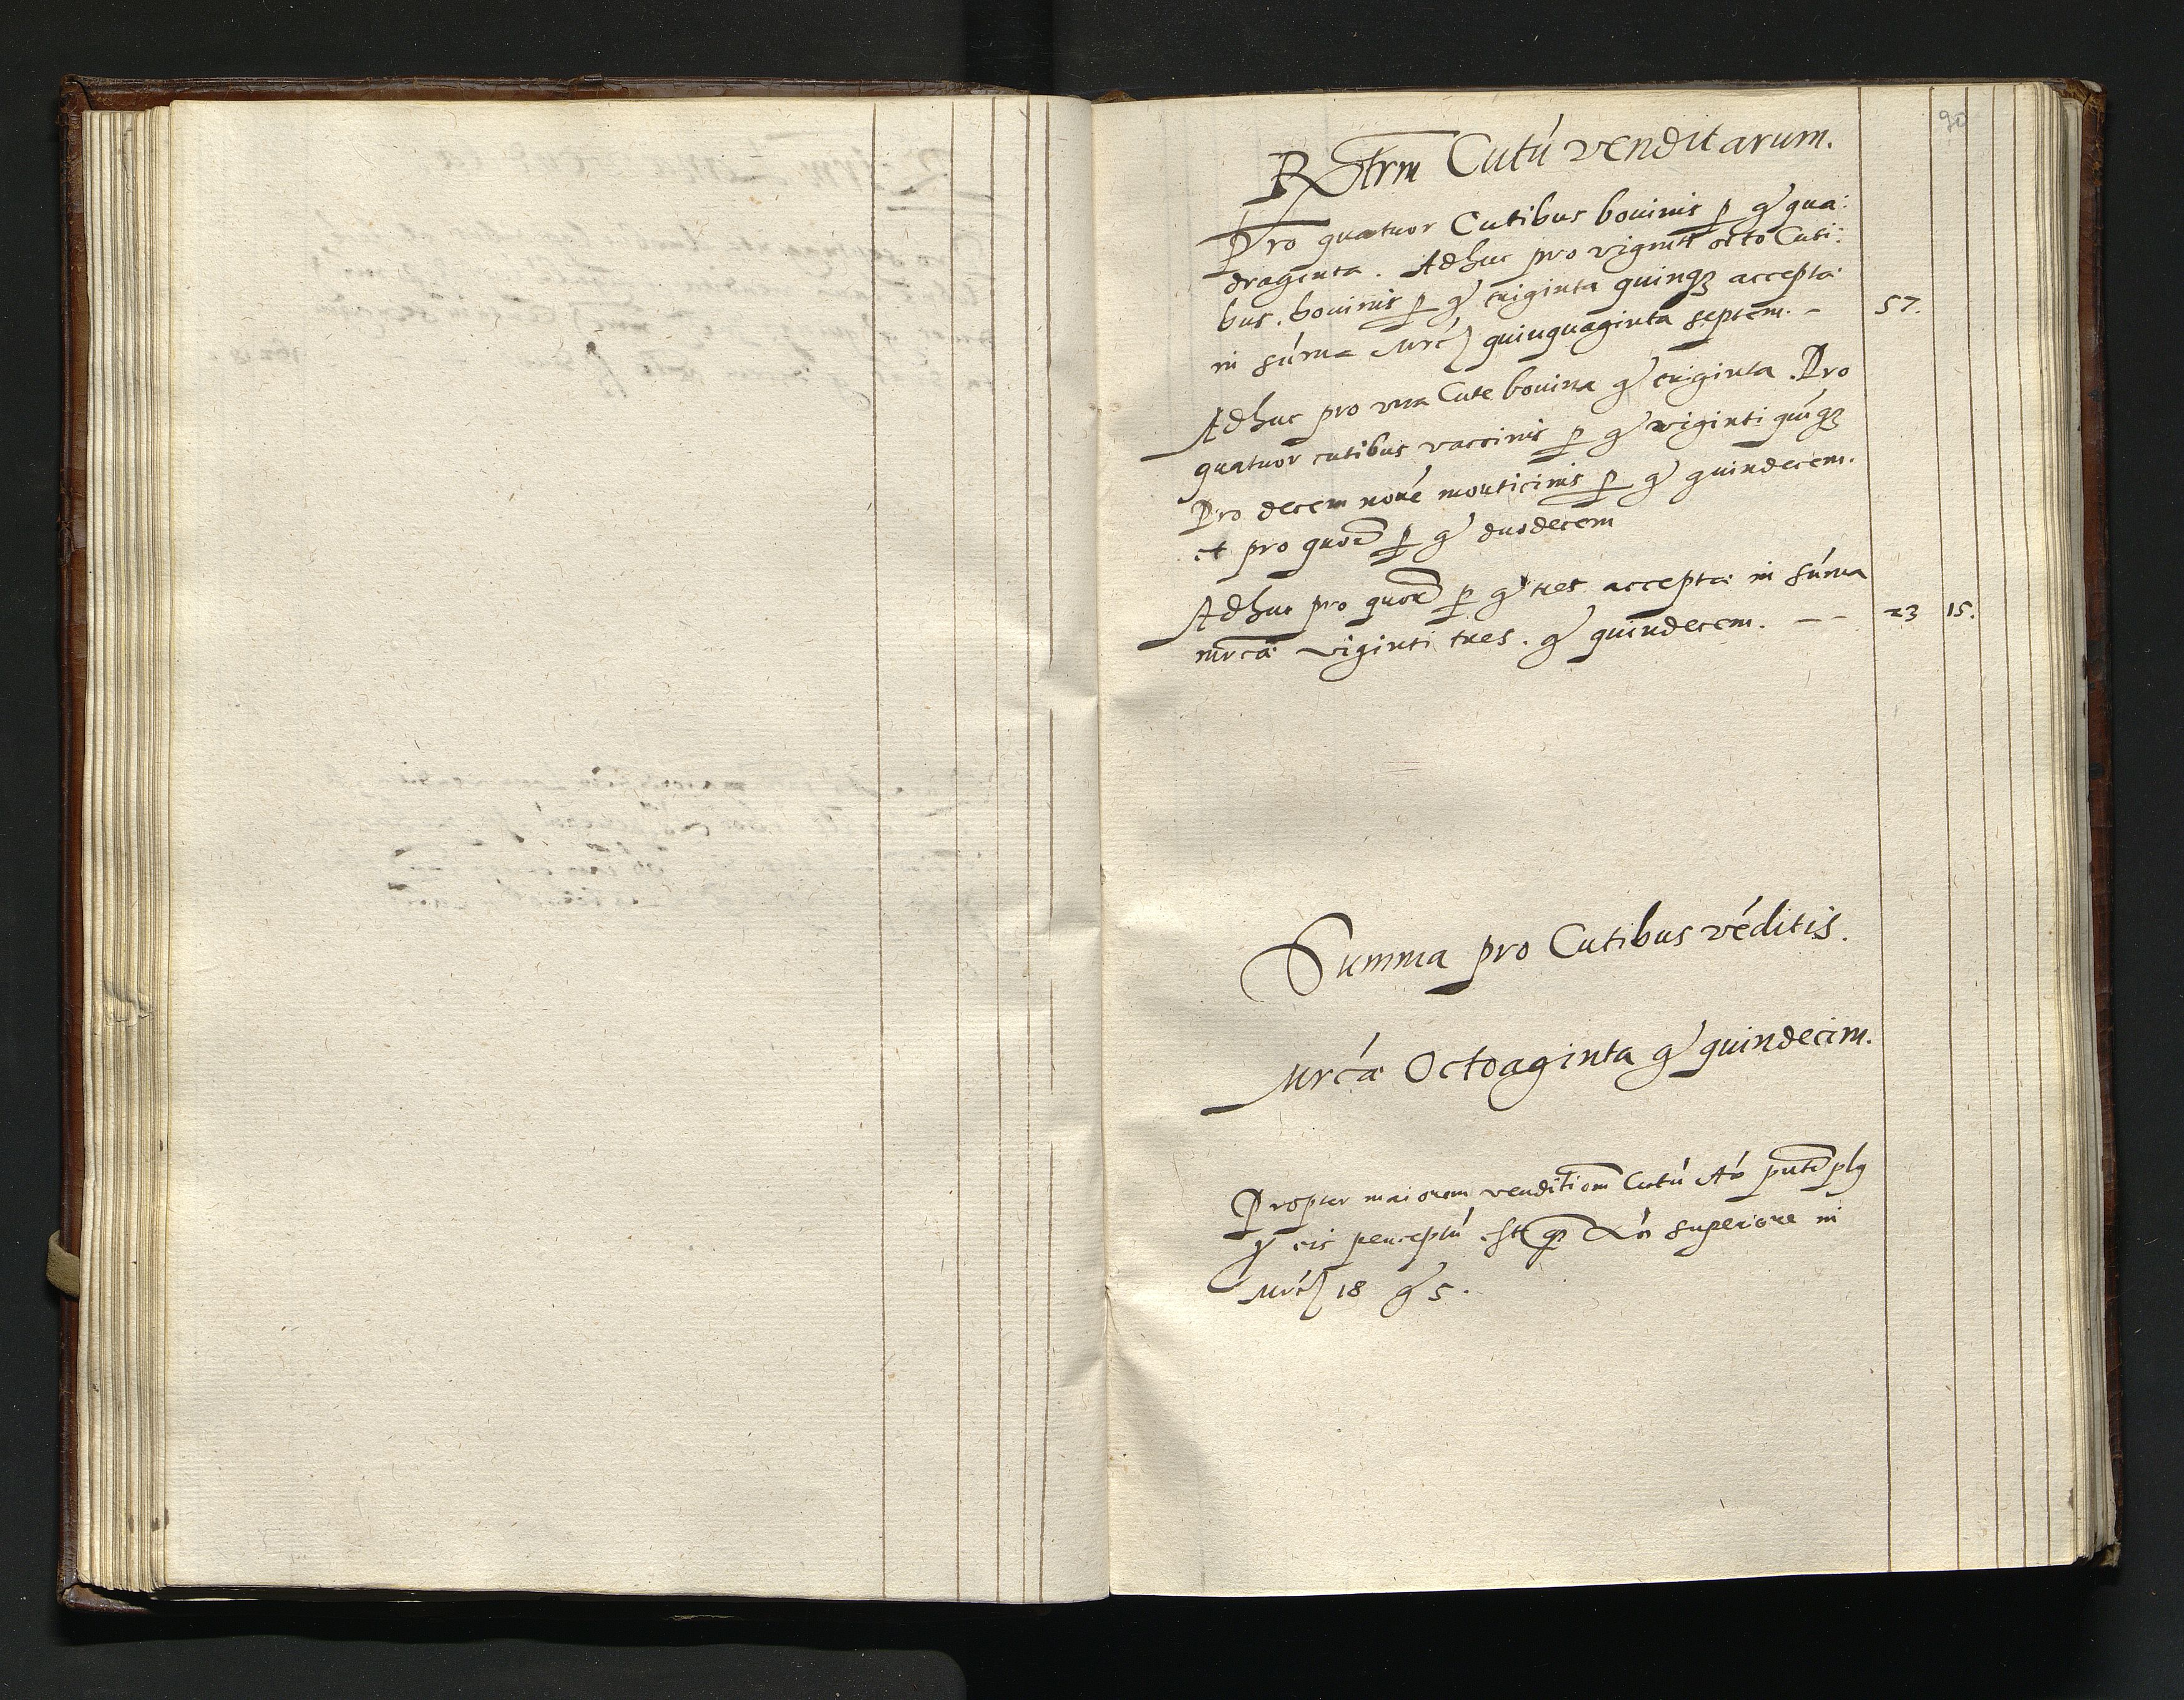 90
Rgtrm Cutú venditarum.
Pro quatuor Cutibus bouinis p gͦ qua:
draginta. Adhuc pro viginti octo Cuti:
bus. bouinis p gͦ triginta quinqꝫ accepta
in súma Mrć quinquaginta septem. – 57.
Adhuc pro vna Cute bouina gͦ triginta. Pro
quatuor cutibus vaccinis p gͦ viginti quíqꝫ
Pro decem noué monticinis p gͦ quindecem.
et pro p gͦ duodecem
Adhuc pro p gͦ tres accepta in súma
mrca viginti tres. gͦ quindecem. – – 23 15.
Summa pro Cutibus véditis.
Mrća Octoaginta gͦ quindecim.
Propter maiorem venditiom Cutú Aó plꝯ
eis perceptú est superiore in
Mrć 18 gͦ 5.